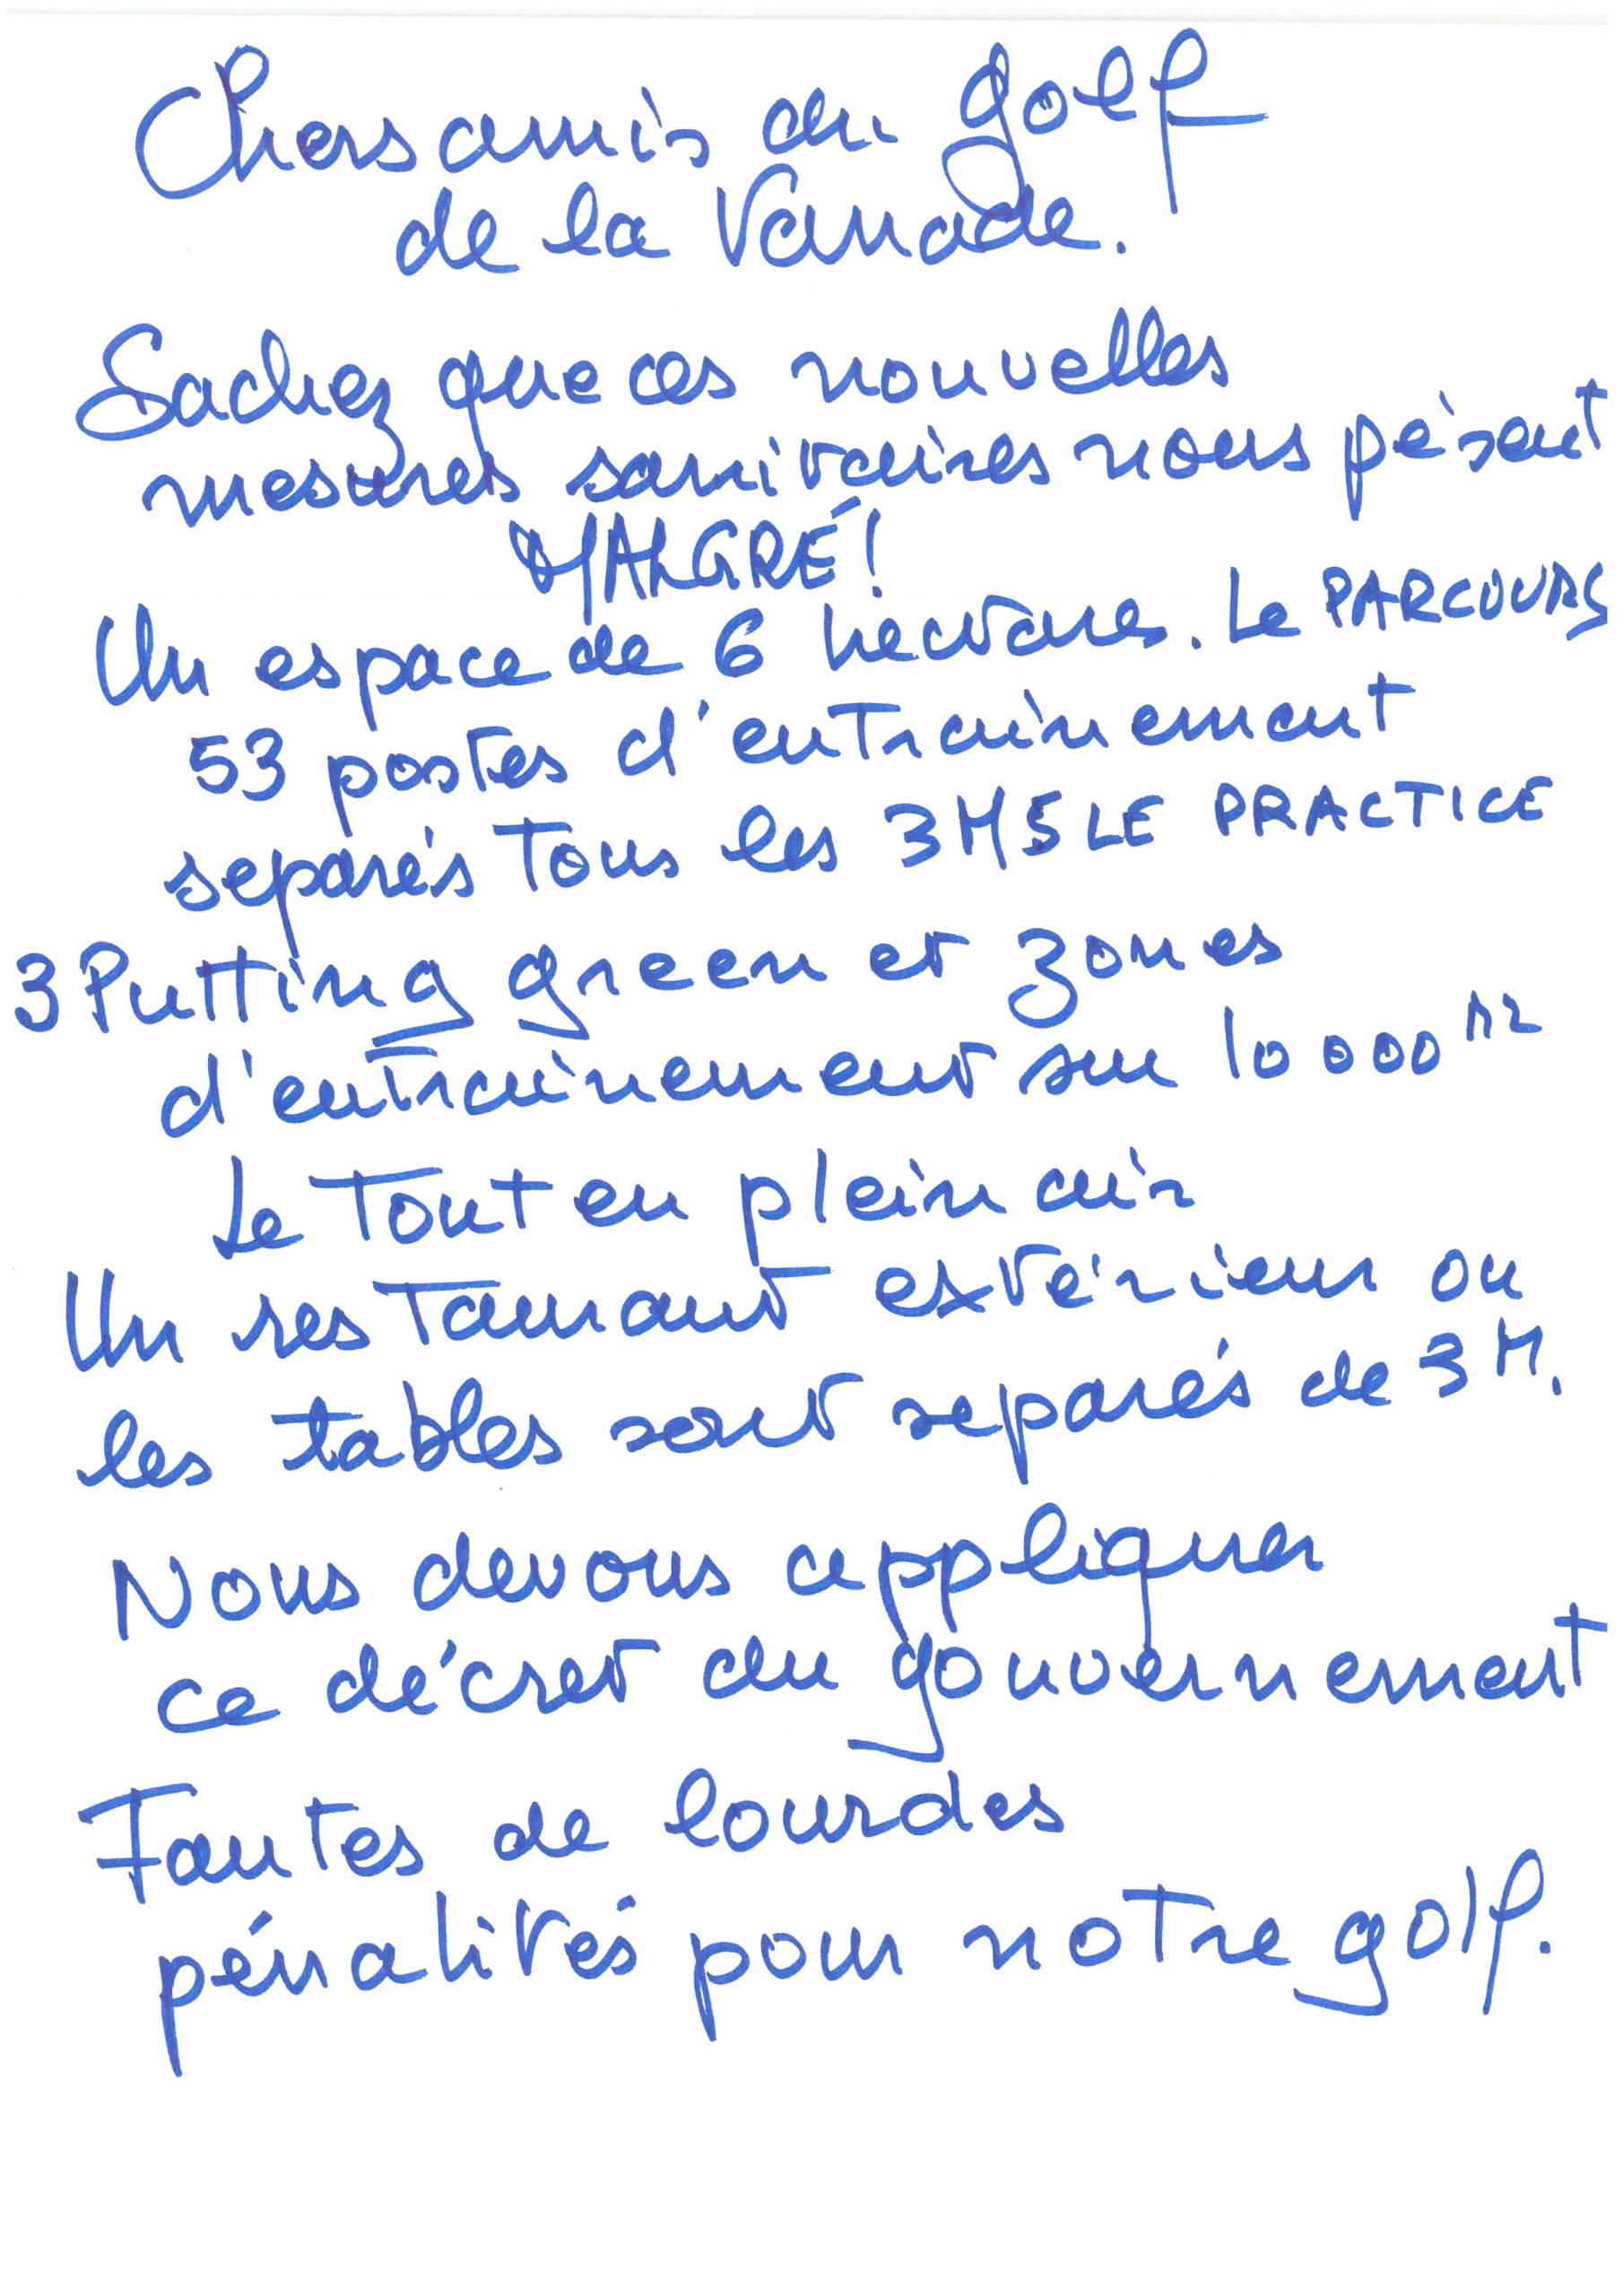 Chers amis du golf
de la Vanade.
Sachez que ces nouvelles
mesures sanitaires nous pèsent
MALGRÉ!
Un espace de 6 hectares. Le PARCOURS
53 postes d'entrainement
separés tous les 3M5 LE PRACTICE
3 Putting green et zones
d'entrainement sur 10000 M2
Le tout en plein air
Un restaurant extérieur ou
les tables sont separés de 3M.
Nous devons appliquer
ce décret du gouvernement
Fautes de lourdes
pénalités pour notre golf.